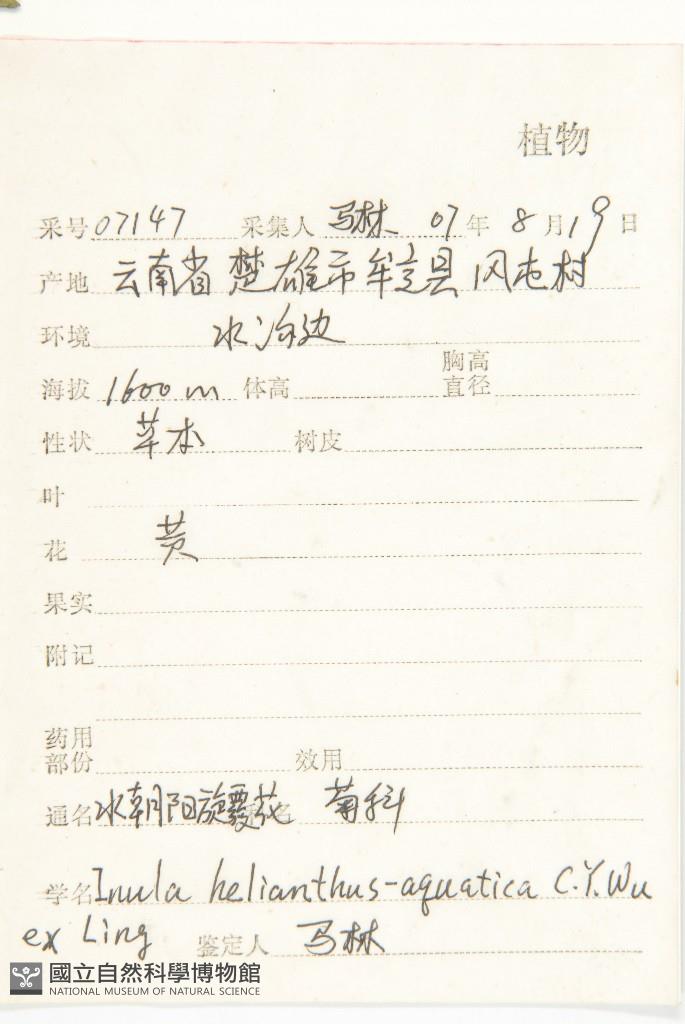 植物
采号 07147 采集人 马林 07 年 8 月 19 日
产地 云南省 楚雄市牟定县 凤屯村
环境 水沟边
海拔 1600 m 体高 胸高直径
性状 草本 树皮
叶
花 黄
果实
附记
药用部份 效用
通名 水朝阳旋覆花 菊科
学名 Inula helianthus-aquatica C.Y.Wu
ex Ling 鉴定人 马林
國立自然科學博物館
NATIONAL MUSEUM OF NATURAL SCIENCE